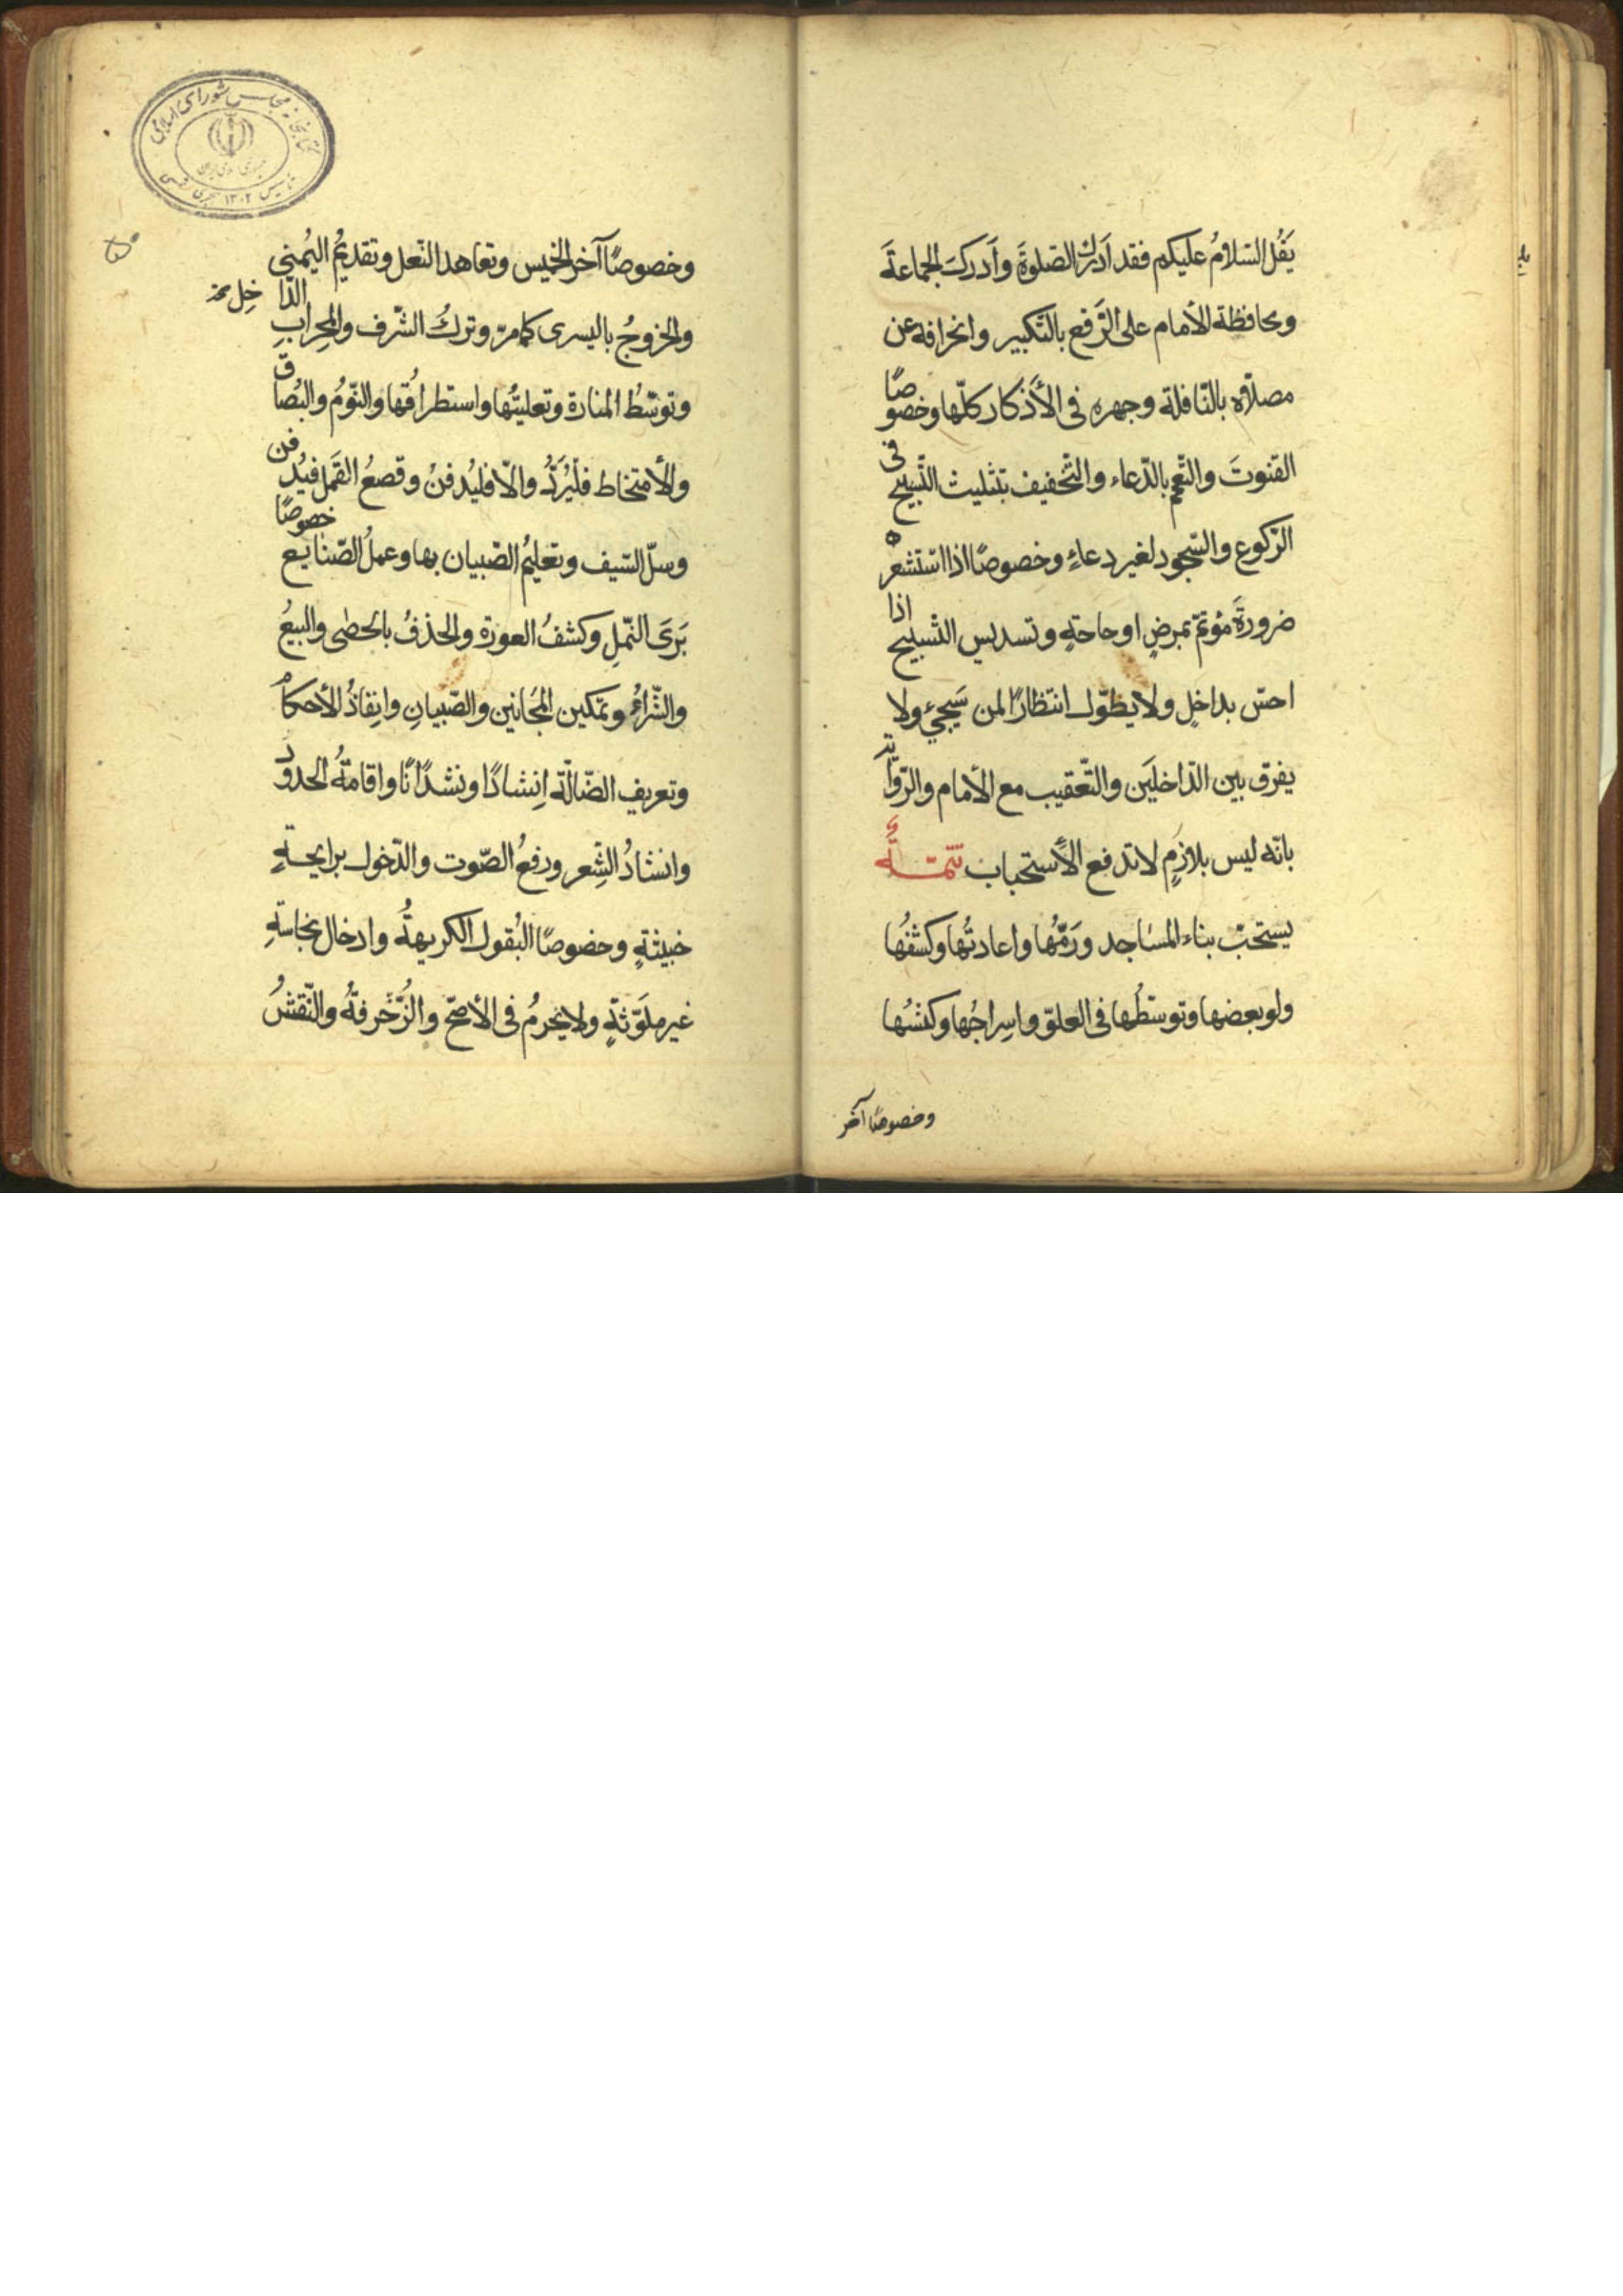 يَقُل السّلامُ عليكم فقد اَدرك الصّلوةَ وأدركَ الجماعةَ
ومحافظة الأمام على الرّفع بالتّكبير وانحرافه عن
مصلّاه بالنّافلة وجهره في الأذكار كلّها وخصوصًا
القنوتَ والتّعمّم بالدّعاء والتّخفيف بتثليث التّسبيح في
الرّكوع والسّجود لغير دعاءٍ وخصوصًا اذا استشعره
ضرورةَ مؤتمّ بمرضٍ او حاجةٍ وتسديس التّسبيح اذا
احسّ بداخلٍ ولا يطوّل انتظارًا لمن سَيَجيءُ ولا
يفرق بين الدّاخلَين والتّعقيب مع الأمام والرّواية
بانّه ليس بلازمٍ لا تدفع الأستحباب تتمّةٌ
يستحبّ بناء المسَاجد ورَمّهُا واعادتُها وكشفُها
ولو بعضها وتوسّطُها في العلوّ واسِراجُها وكنسُها
وخصوصًا آخر
وخصوصًا آخر الخميس وتعاهد النّعل وتقديمُ اليُمنى
الدّاخِل
والخروجُ باليسرى كما مرّ وتركُ الشّرف والمحِرابِ
وتوسّطُ المنارة وتعليتُها واستطراقُها والنّومُ والبُصاق
والأمتخاط فليُرَدّ والّا فليُدفنْ وقصعُ القَمل فيُدفن
وسلّ السّيف وتعليمُ الصّبيان بها وعملُ الصّنايع خصوصًا
بَرىَ النّبلِ وكشفُ العورة والحذفُ بالحصٰى والبيعُ
والشّراءُ وتمكين المجَانين والصّبيانِ وانِفاذُ الأحكام
وتعريف الضّالّة اِنشادًا ونشدانًا واقامةُ الحدود
وانشادُ الشّعِر ورفعُ الصّوت والدّخول برايحةٍ
خبيثةٍ وخصوصًا البُقول الكريهةُ وادخال نجاسةٍ
غير ملَوّثةٍ ولا يحرمُ في الأصحّ والزُّخرفةُ والنّقشُ
كتابخانه مجلس شورای اسلامی
تأسیس ۱۳۰۲ هجری شمسی
۵۰